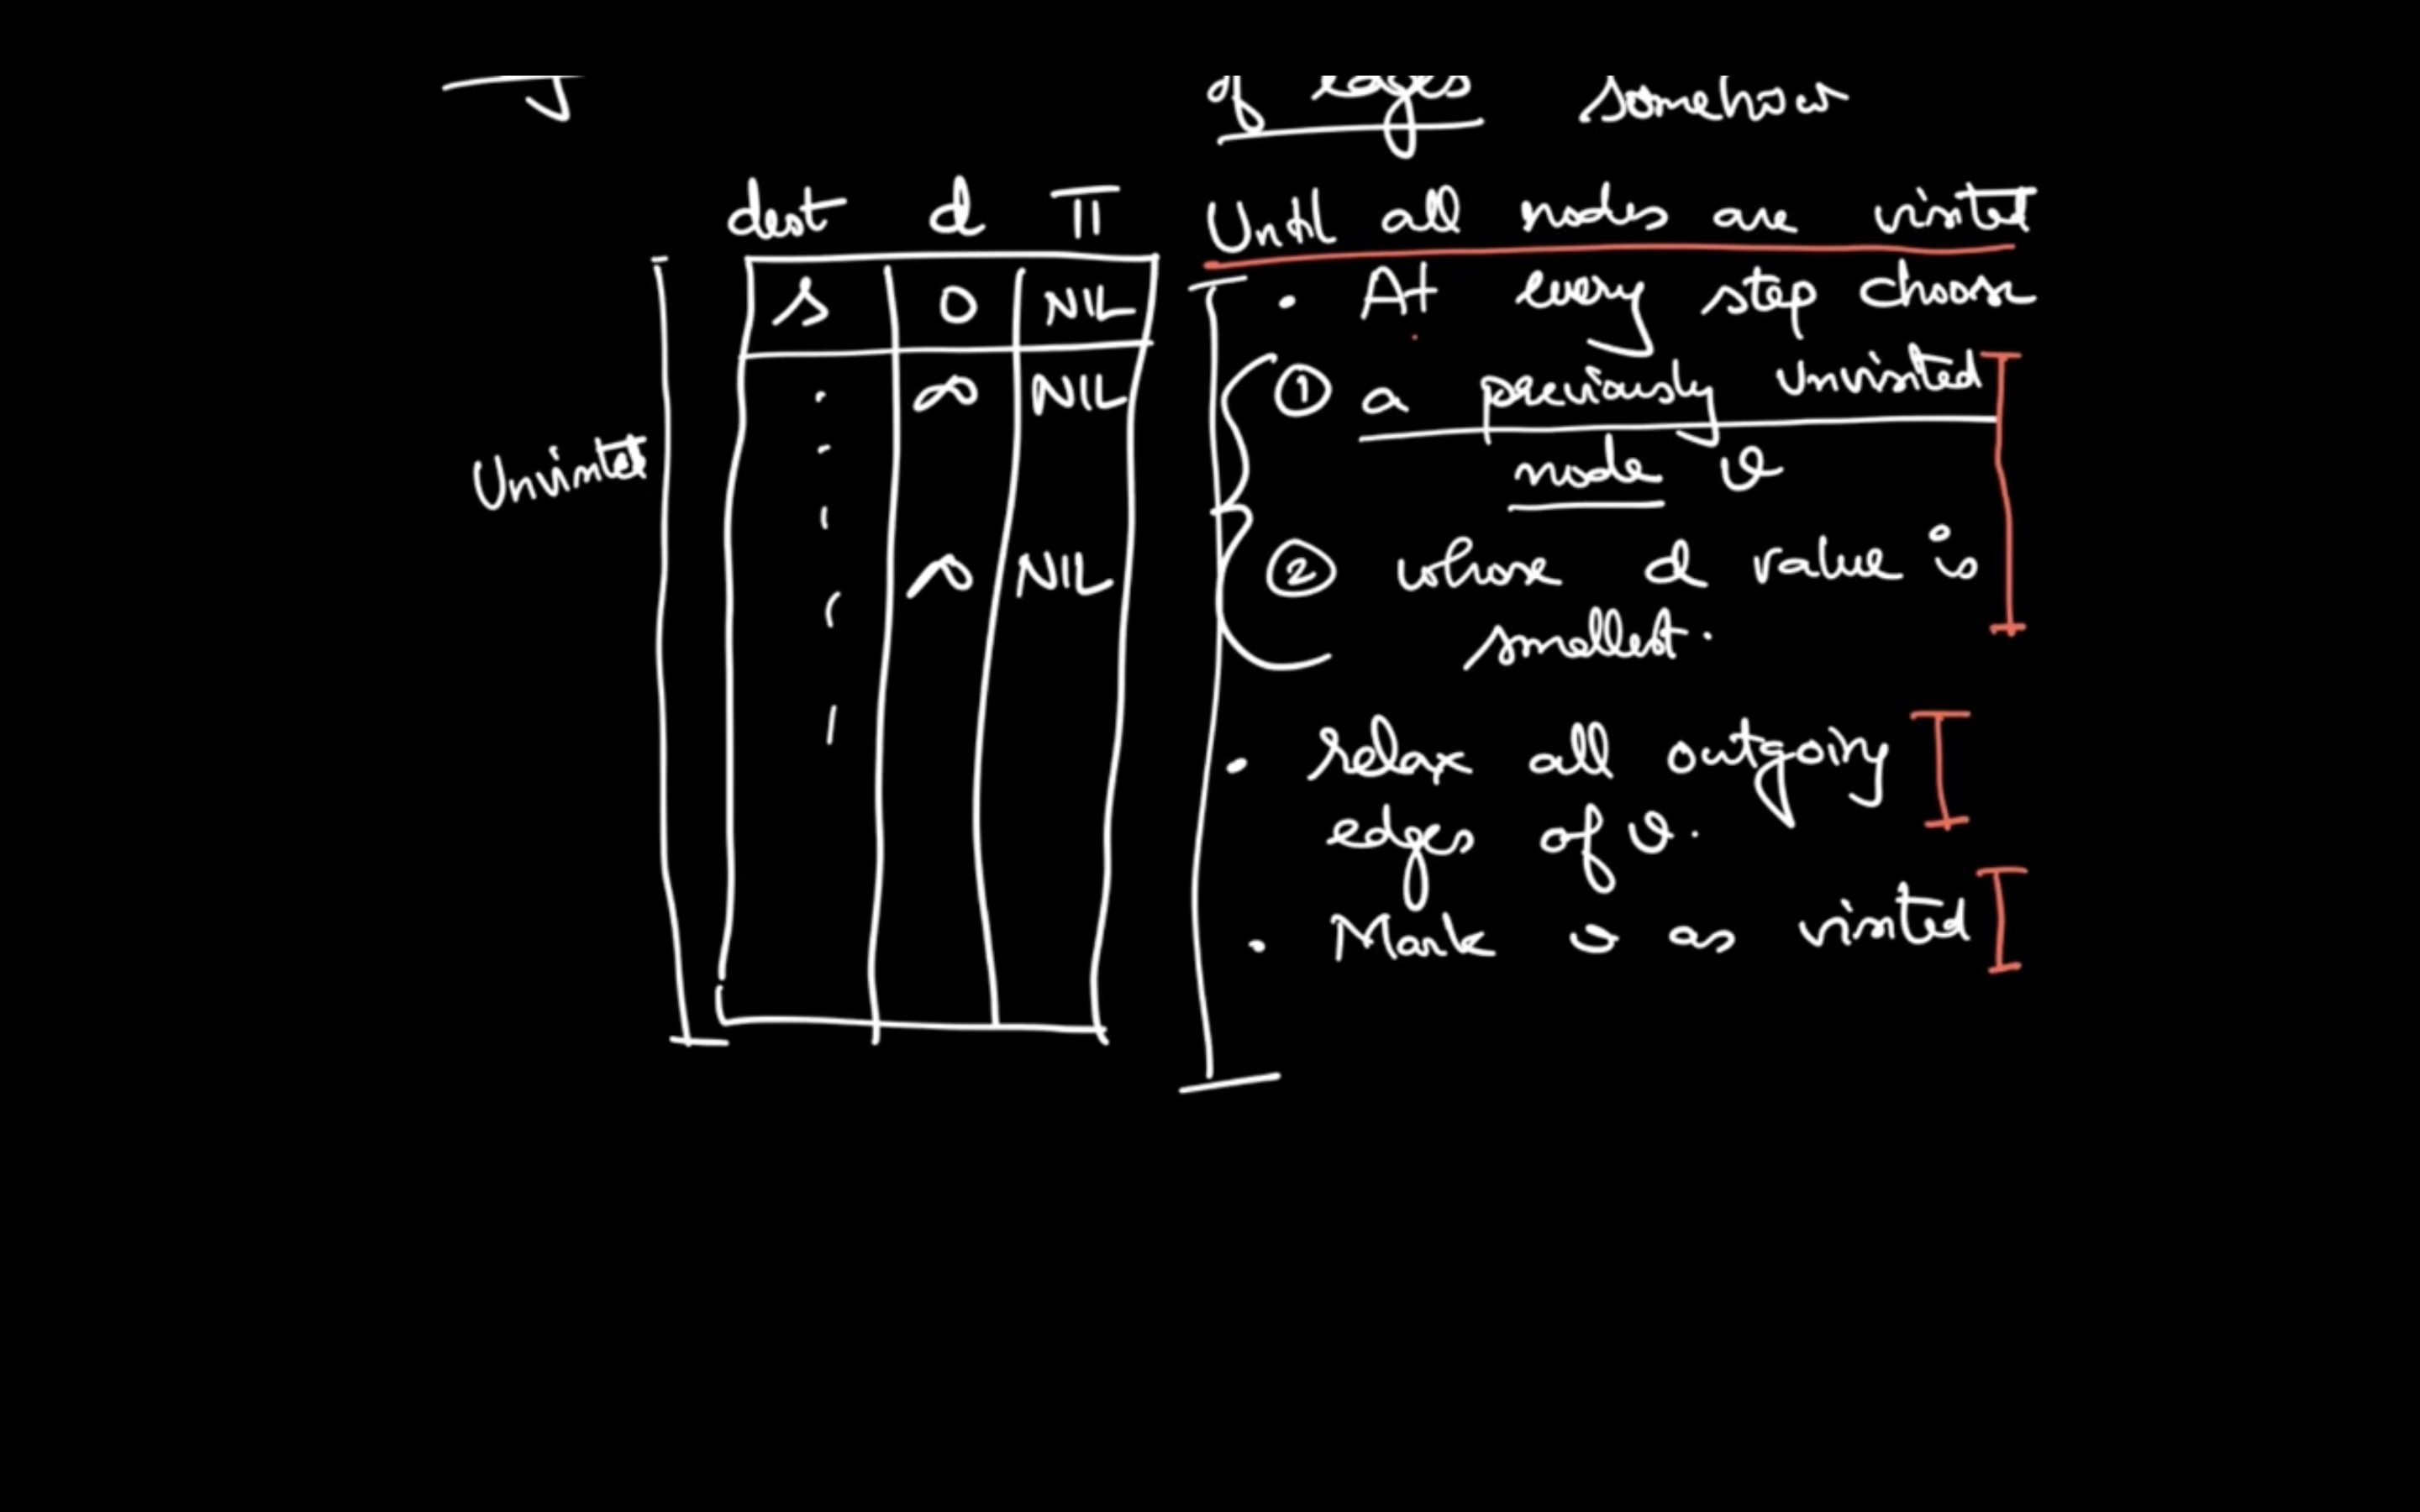 of edges somehow
dest d π
s 0 NIL
∞ NIL
∞ NIL
Unvisited
Until all nodes are visited
• At every step choose
① a previously unvisited
node v
② whose d value is
smallest.
• relax all outgoing
edges of v.
• Mark v as visited